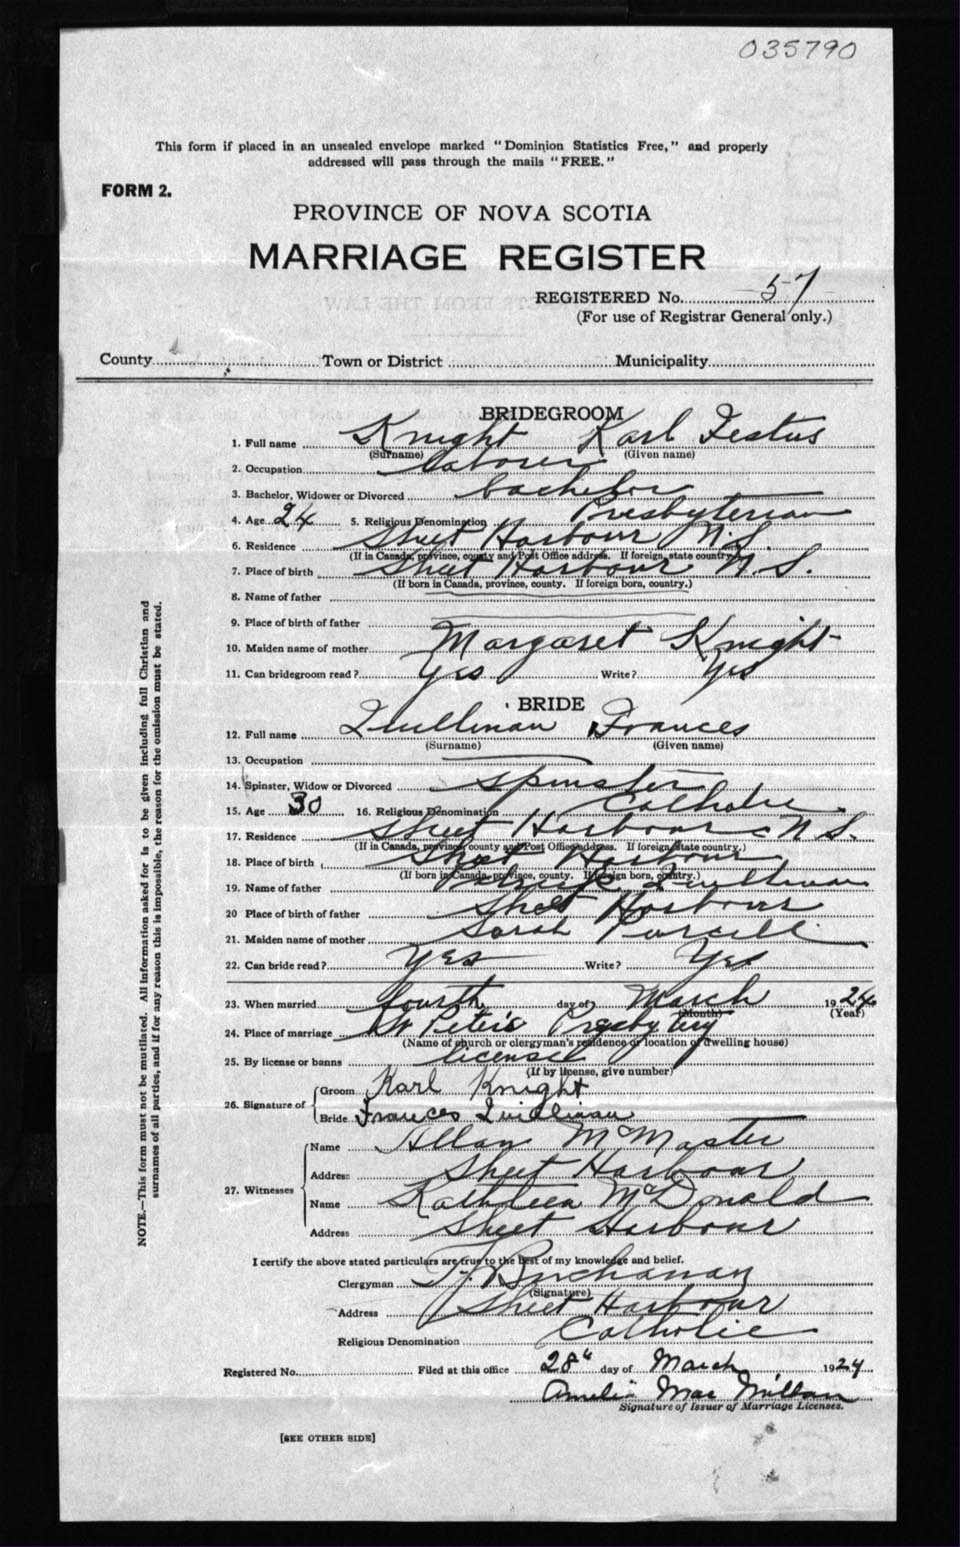 035790
This form if placed in an unsealed envelope marked "Dominion Statistics Free," and properly
addressed will pass through the mails "FREE."
FORM 2.
PROVINCE OF NOVA SCOTIA
MARRIAGE REGISTER
REGISTERED No. 57
(For use of Registrar General only.)
County Town or District Municipality
BRIDEGROOM
1. Full name Knight Karl Festus
(Surname) (Given name)
2. Occupation laborer
3. Bachelor, Widower or Divorced bachelor
4. Age 24 5. Religious Denomination Presbyterian
6. Residence Sheet Harbour N.S.
(If in Canada, province, county and Post Office address. If foreign, state country.)
7. Place of birth Sheet Harbour N.S.
(If born in Canada, province, county. If foreign born, country.)
8. Name of father
9. Place of birth of father
10. Maiden name of mother Margaret Knight
11. Can bridegroom read? Yes Write? Yes
BRIDE
12. Full name Quillinan Frances
(Surname) (Given name)
13. Occupation
14. Spinster, Widow or Divorced Spinster
15. Age 30 16. Religious Denomination Catholic
17. Residence Sheet Harbour N.S.
(If in Canada, province, county and Post Office address. If foreign, state country.)
18. Place of birth Sheet Harbour
(If born in Canada, province, county. If foreign born, country.)
19. Name of father Patrick Quillinan
20 Place of birth of father Sheet Harbour
21. Maiden name of mother Sarah Purcell
22. Can bride read? Yes Write? Yes
23. When married fourth day of March 1924
(Month) (Year)
24. Place of marriage St Peter's Presbytery
(Name of church or clergyman's residence or location of dwelling house)
25. By license or banns license
(If by license, give number)
26. Signature of Groom Karl Knight
Bride Frances Quillinan
27. Witnesses Name Allan McMaster
Address Sheet Harbour
Name Kathleen McDonald
Address Sheet Harbour
I certify the above stated particulars are true to the best of my knowledge and belief.
Clergyman Buchanan
(Signature)
Address Sheet Harbour
Religious Denomination Catholic
Registered No. Filed at this office 28" day of March 1924
Amelia MacMillan
Signature of Issuer of Marriage Licenses.
[SEE OTHER SIDE]
NOTE.—This form must not be mutilated. All information asked for is to be given including full Christian and
surnames of all parties, and if for any reason this is impossible, the reason for the omission must be stated.